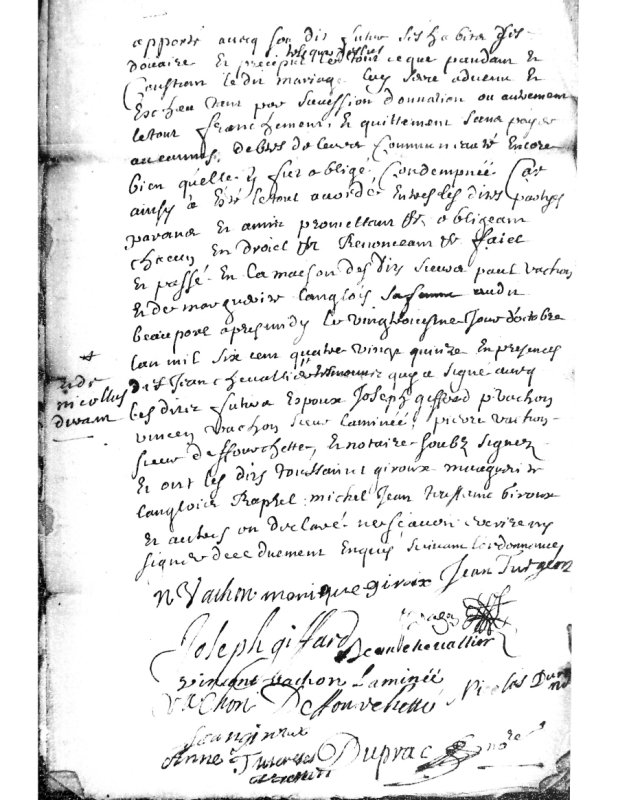 apporté avecq son dit futur ses habits ses
douaire Et precipu tels que dessus Et tout ce que pandant Et
Constant le dit mariage luy sera advenu Et
Escheu tant par sucession donnation ou autrement
le tout franchement Et quittement sans payer
aucunnes debtes de lad Communauté Encore
bien qu'elle y fut oblige Condempnée Car
ainsy a Esté le tout accordé Entre les dites partyes
pavant Et amin promettant &c obligeam
chacun En droict &c Renonceam &c faict
Et passé En la maison des dits sieurs paul vachon
Et de margueritte langlois sa femme audit
beauport apres midy le vingt jour d'octobre
lan mil six cent quatre vingt quinze En presences
Et de
nicollas
duram
dit Jean chevallier tesmoins qui a signé avecq
les dits futurs Espoux Joseph giffard p vachon
vincen vachon sieur laminée pierre vachon
sieur deffourchette, Et notaire soubz signez
Et ont les dits toussaint giroux marguerite
langlois Raphel michel Jean giroux
Et autres on declaré ne sçavoir Escrire ny
signer de ce duement Enquis suivant lordonnance
n Vachon monique girox Jean Turgeon
Joseph giffard Jean chevallier
vincant vachon laminée
Vachon Deffourchette Nicolas Dur
Jean girou
Anne Therese
Duprac nore